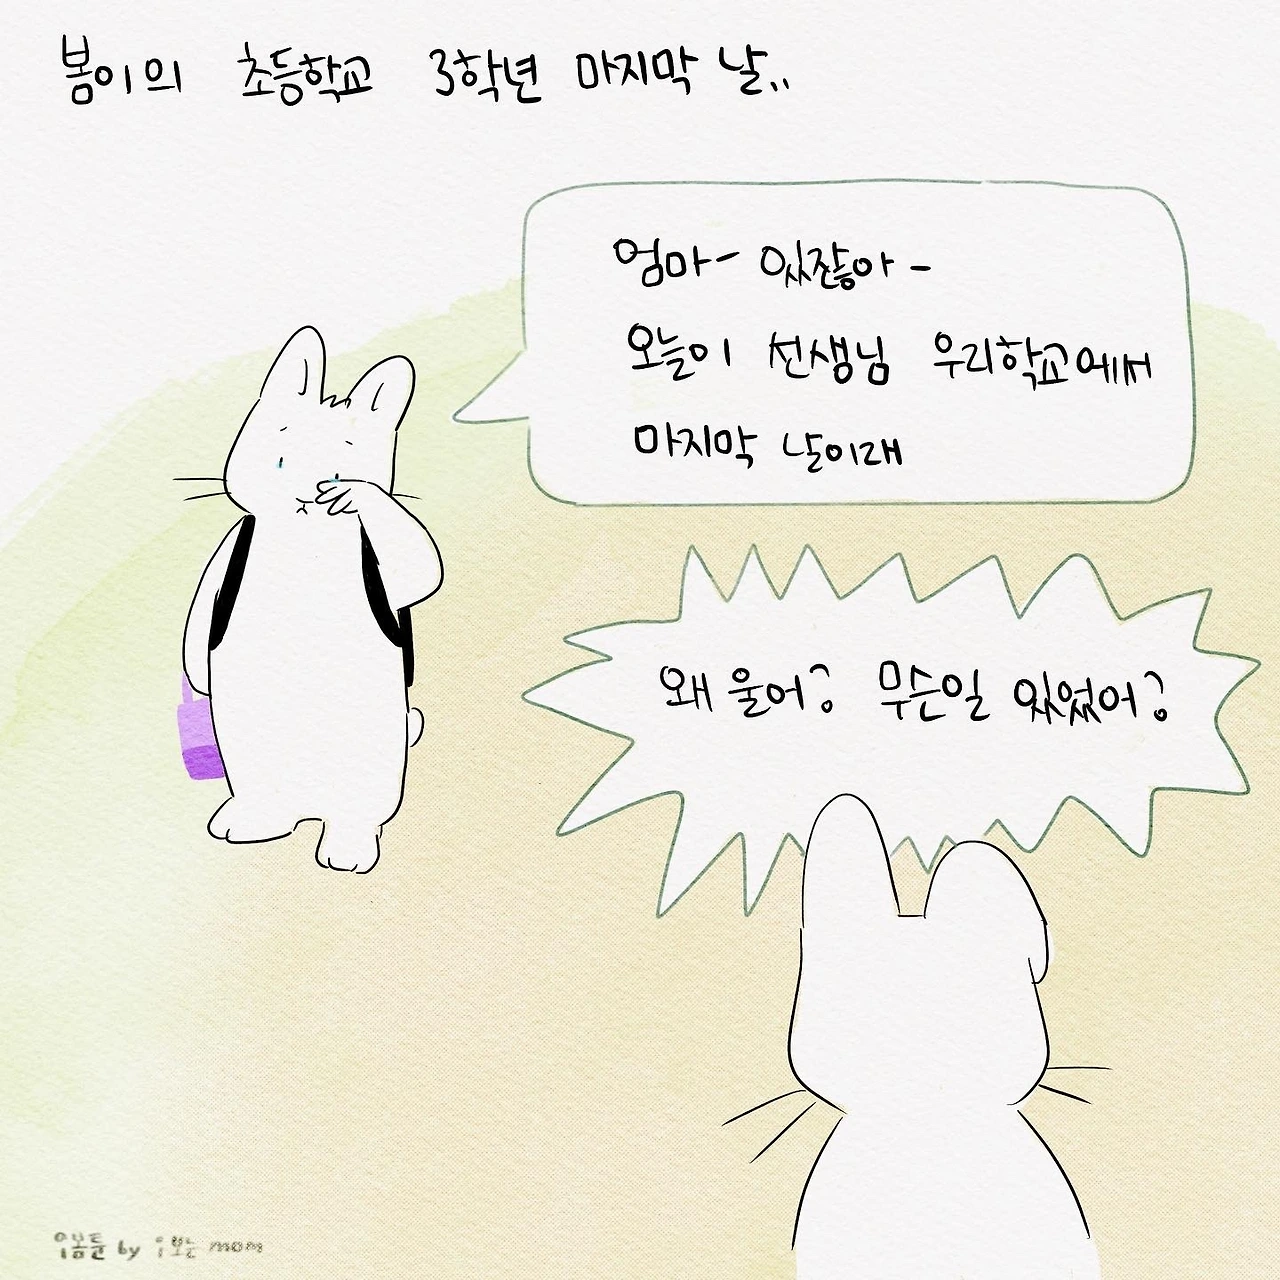 봄이의 초등학교 3학년 마지막 날..
엄마- 있잖아-
오늘이 선생님 우리학교에서
마지막 날이래
왜 울어? 무슨일 있었어?
by mom